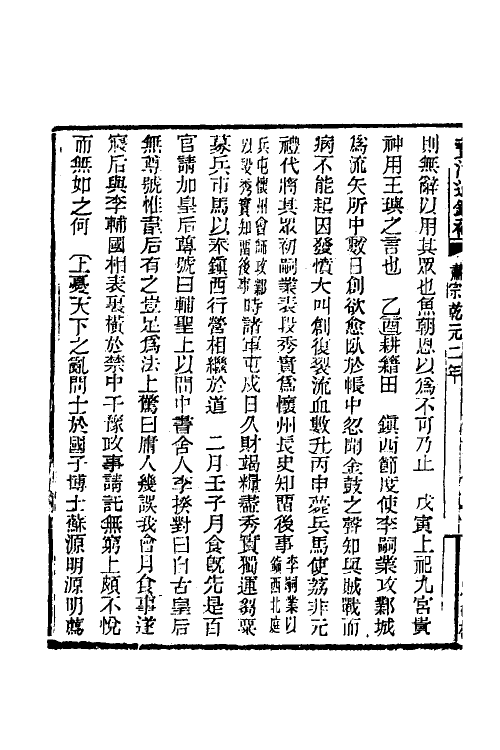 資治通鑑補 肅宗乾元二年
則無辭以用其眾也魚朝恩以為不可乃止　戊寅上祀九宮貴
神用王璵之言也　乙酉耕籍田　鎮西節度使李嗣業攻鄴城
為流矢所中數日創欲愈臥於帳中忽聞金鼓之聲知與賊戰而
病不能起因發憤大叫創復裂流血數升丙申薨兵馬使荔非元
禮代將其眾初嗣業表段秀實為懷州長史知畱後事李嗣業以鎮西北庭
兵屯懷州會師攻鄴以段秀實知畱後事時諸軍屯戍日久財竭糧盡秀實獨運芻粟
募兵市馬以奉鎮西行營相繼於道　二月壬子月食旣先是百
官請加皇后尊號曰輔聖上以問中書舍人李揆對曰自古皇后
無尊號惟韋后有之豈足為法上驚曰庸人幾誤我會月食事遂
寢后與李輔國相表裏橫於禁中干豫政事請託無窮上頗不悅
而無如之何　上憂天下之亂問士於國子博士蘇源明源明薦